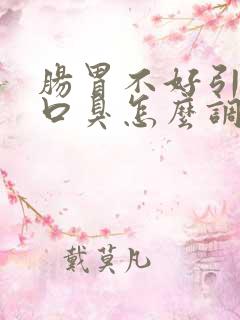 腸胃不好引
口臭怎麼調
戴莫凡